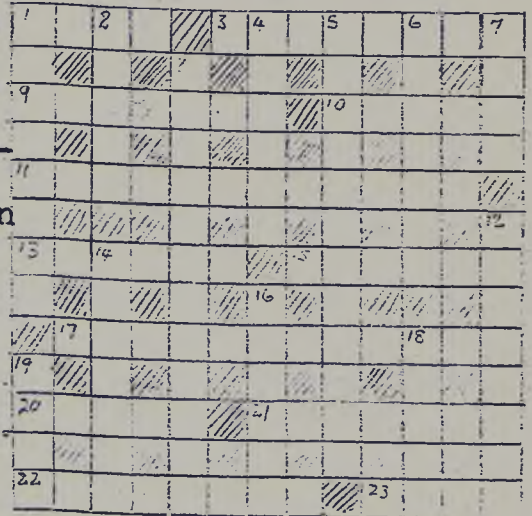 1 2 3 4 5 6 7
9 10
11
n 12
13 14 5
16
17 18
19
20 21
22 23